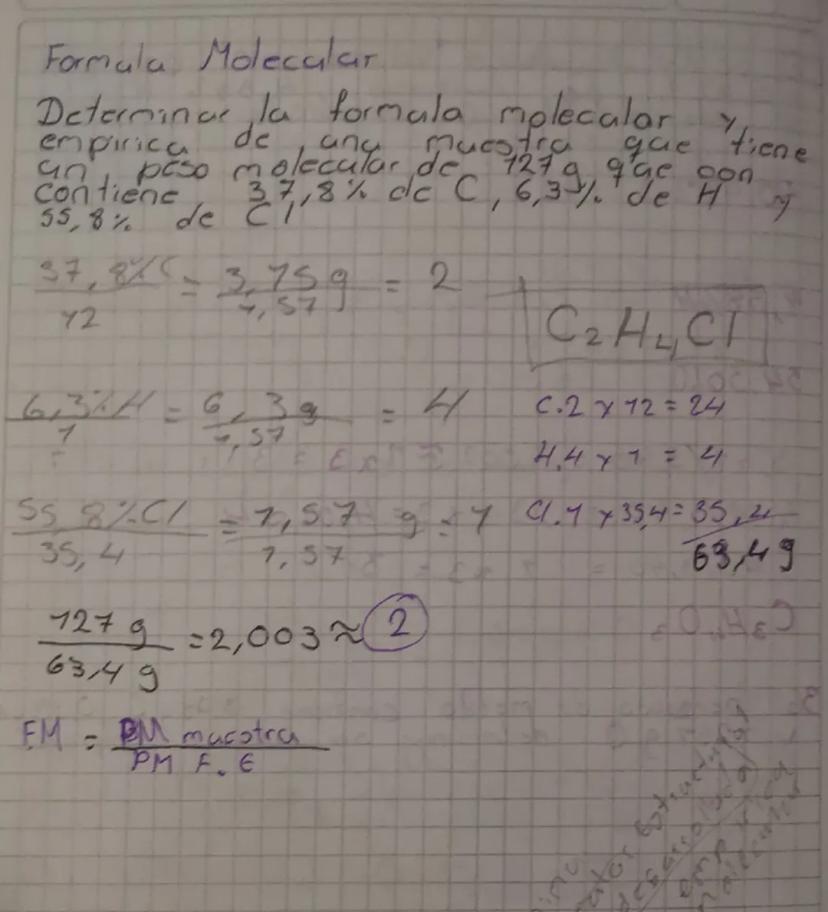 Formula Molecular
Determinar la formula molecular y
empirica de una muestra que tiene
un peso molecular de 127g que con
contiene 37,8% de C, 6,3% de H y
55,8% de Cl
37,8%C/12 = 3,15g/1,57 = 2
C₂H₄Cl
6,3%H/1 = 6,3g/1,57 = 4
C.2 x 12 = 24
H.4 x 1 = 4
55 8%Cl/35,4 = 1,57 g/1,57 = 1
Cl.1 x 35,4 = 35,4
63,4g
127g/63,4g = 2,003 ≈ 2
FM = PM muestra/PM F.E